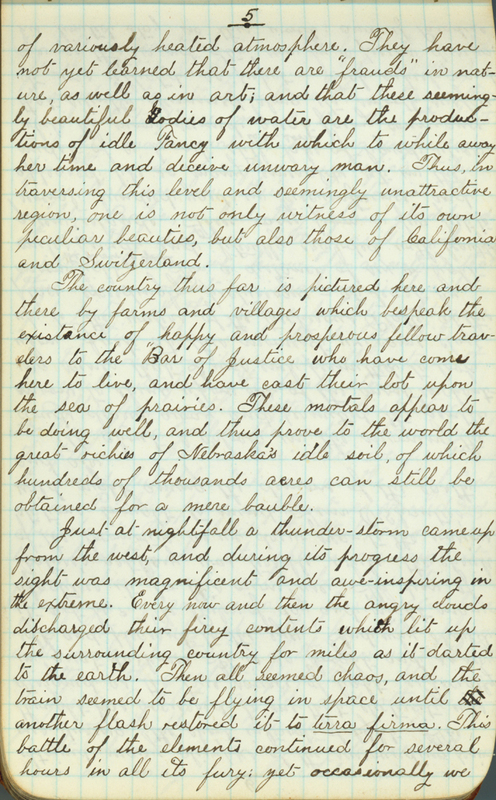 5
of variously heated atmosphere. They have
not yet learned that there are "frauds" in nat-
ure, as well as in art; and that these seeming-
ly beautiful bodies of water are the produc-
tions of idle Fancy with which to while away
her time and deceive unwary man. Thus, in
traversing this level and seemingly unattractive
region, one is not only witness of its own
peculiar beauties, but also those of California
and Switzerland.
The country thus far is pictured here and
there by farms and villages which bespeak the
existance of happy and prosperous fellow trav-
elers to the "Bar of Justice who have come
here to live, and have cast their lot upon
the sea of prairies. These mortals appear to
be doing well, and thus prove to the world the
great richies of Nebraska's idle soil, of which
hundreds of thousands acres can still be
obtained for a mere bauble.
Just at nightfall a thunder-storm came up
from the west, and during its progress the
sight was magnificent and awe-inspiring in
the extreme. Every now and then the angry clouds
discharged their firey contents which lit up
the surrounding country for miles as it darted
to the earth. Then all seemed chaos, and the
train seemed to be flying in space until
another flash restored it to terra firma. This
battle of the elements continued for several
hours in all its fury: yet occasionally we